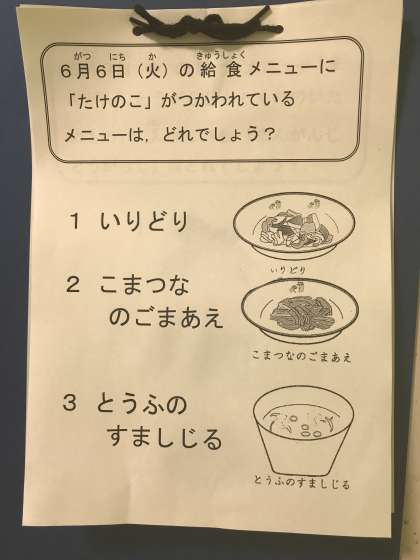 6月6日（火）の給食メニューに
「たけのこ」がつかわれている
メニューは，どれでしょう？
1 いりどり
いりどり
2 こまつな
のごまあえ
こまつなのごまあえ
3 とうふの
すましじる
とうふのすましじる